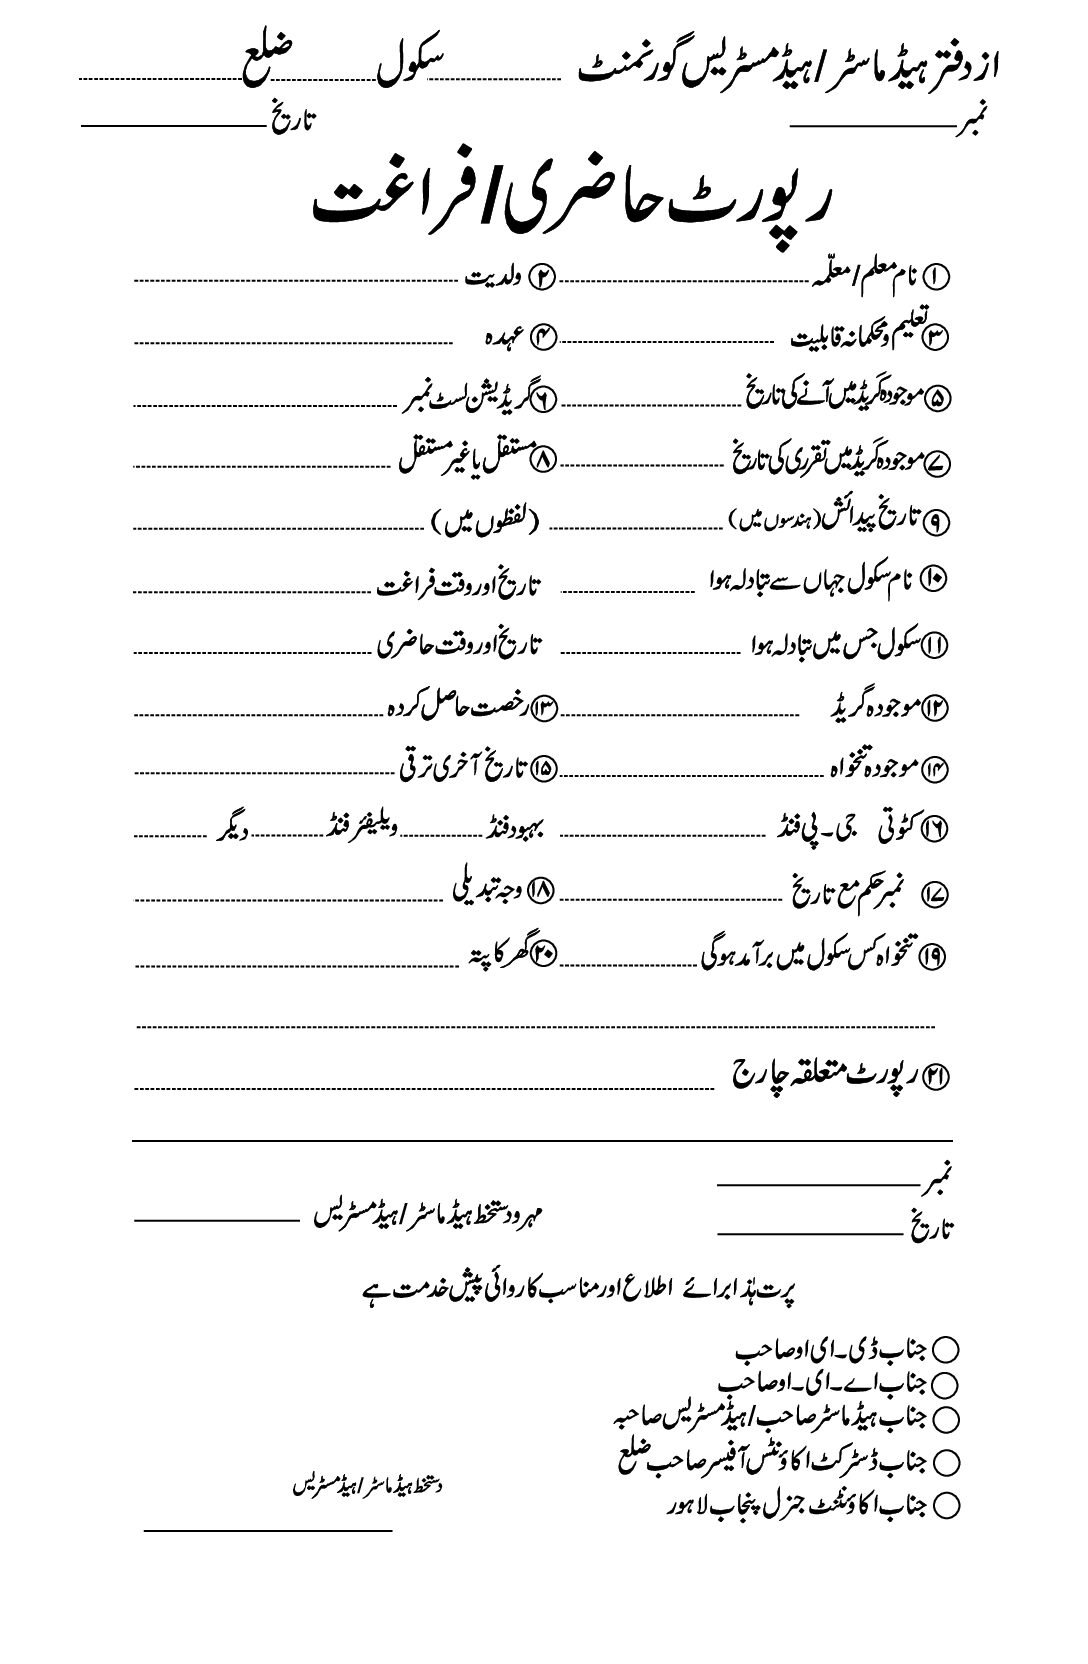 از دفتر ہیڈ ماسٹر / ہیڈ مسٹریس گورنمنٹ سکول ضلع
نمبر تاریخ
رپورٹ حاضری / فراغت
۱ نام معلم / معلّمہ ۲ ولدیت
۳ تعلیم و محکمانہ قابلیت ۴ عہدہ
۵ موجودہ گریڈ میں آنے کی تاریخ ۶ گریڈیشن لسٹ نمبر
۷ موجودہ گریڈ میں تقرری کی تاریخ ۸ مستقل یا غیر مستقل
۹ تاریخ پیدائش (ہندسوں میں) (لفظوں میں)
۱۰ نام سکول جہاں سے تبادلہ ہوا تاریخ اور وقت فراغت
۱۱ سکول جس میں تبادلہ ہوا تاریخ اور وقت حاضری
۱۲ موجودہ گریڈ ۱۳ رخصت حاصل کردہ
۱۴ موجودہ تنخواہ ۱۵ تاریخ آخری ترقی
۱۶ کٹوتی جی۔پی فنڈ بہبود فنڈ ویلیفئر فنڈ دیگر
۱۷ نمبر حکم مع تاریخ ۱۸ وجہ تبدیلی
۱۹ تنخواہ کس سکول میں برآمد ہوگی ۲۰ گھر کا پتہ
۲۱ رپورٹ متعلقہ چارج
نمبر
مہر و دستخط ہیڈ ماسٹر / ہیڈ مسٹریس
تاریخ
پرت ہٰذا برائے اطلاع اور مناسب کاروائی پیش خدمت ہے
جناب ڈی۔ای او صاحب
جناب اے۔ای۔او صاحب
جناب ہیڈ ماسٹر صاحب / ہیڈ مسٹریس صاحبہ
جناب ڈسٹرکٹ اکاؤنٹس آفیسر صاحب ضلع
دستخط ہیڈ ماسٹر / ہیڈ مسٹریس
جناب اکاؤنٹنٹ جنرل پنجاب لاہور